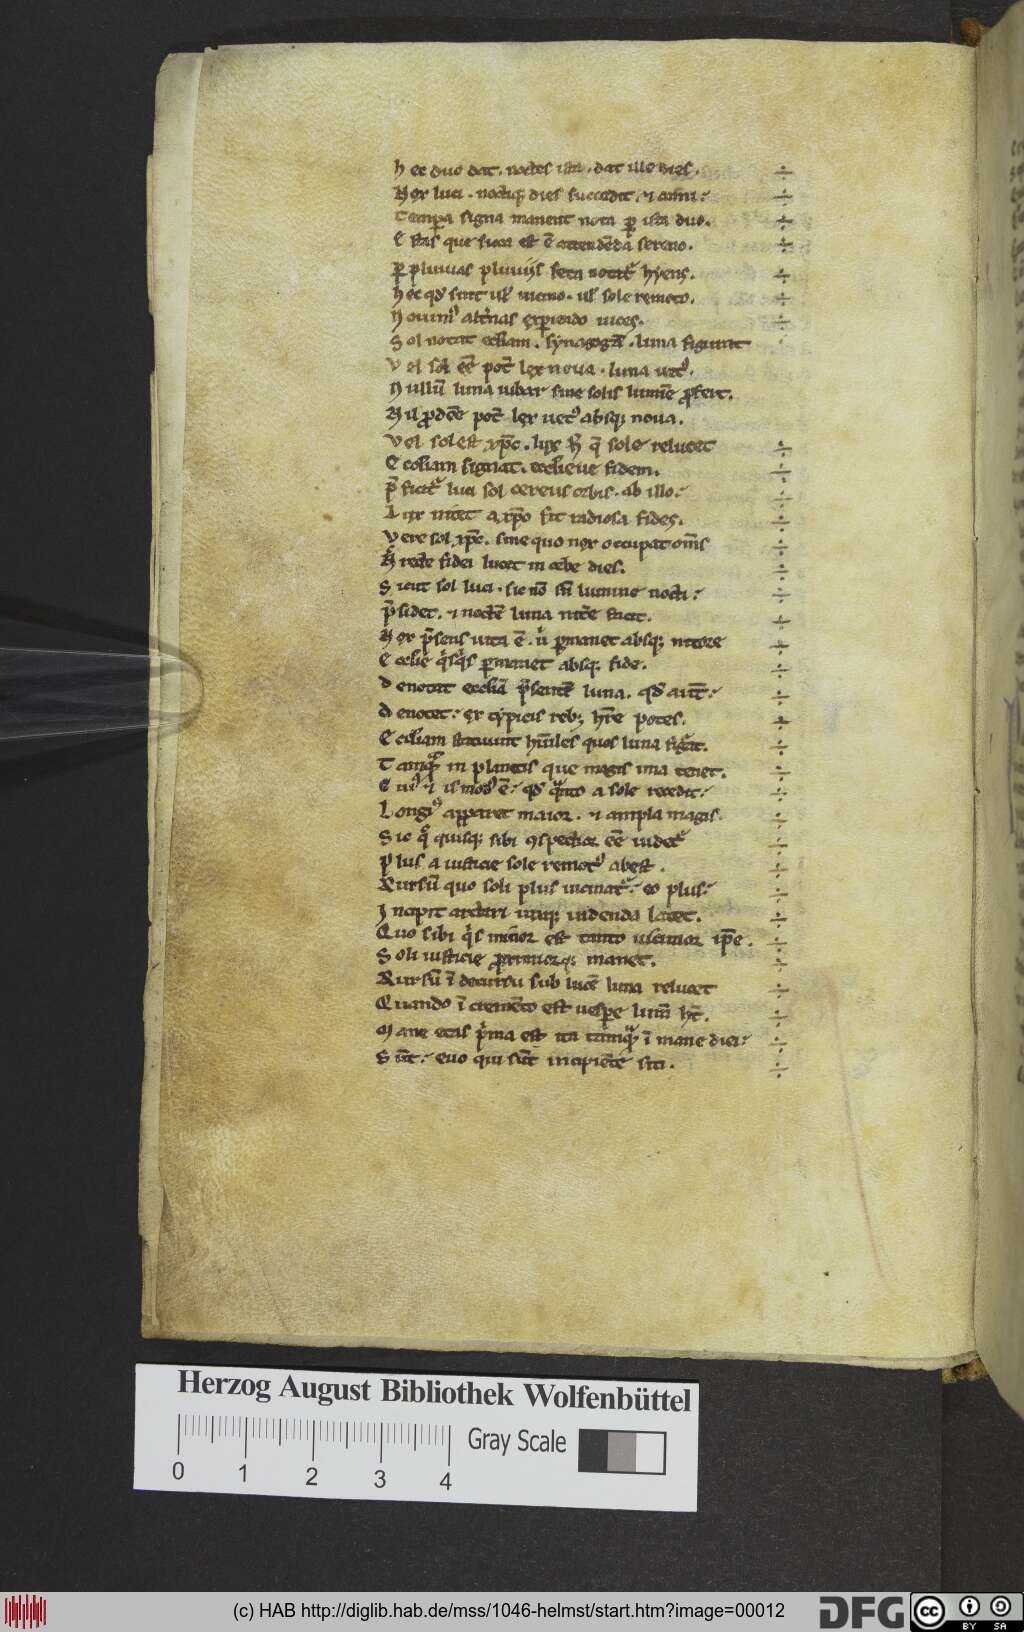 hec duo dat. noctes ista. dat ille dies.
Nox luci. noctiq; dies succedit. ⁊ anni:
Tempa signa manent nota ꝑ ista duo.
Estas que sicca est ē attendēda sereno.
ꝑ pluuias pluuiis feta notat᷑ hyens.
hec qđ sint ul᷑ uicino. ul᷑ sole remoto.
Nouim᷒ alt᷑nas exꝑiendo uices.
Sol notat eccliam. synagogā. luna figurat
Vel sol ēē pot᷑ lex noua. luna uet᷒.
Nullū luna iubar sine solis lumīe ꝓfert.
Nil ꝓdēē pot᷑ lex uet᷒ absq; noua.
Vel sol est xp̄c. lux
Eccliam signat. ecclieue fidem.
p̄ficit᷑ luci sol aereus orbis. ab illo:
Lux nitet a xp̄o fit radiosa fides.
Vere sol xp̄c. sine quo nox occupat om̄s
recte fidei lucet in orbe dies.
Sicut sol luci. sic nō sn̄ lumine nocti:
p̄sidet. ⁊ noctē luna nitēe facit.
Nox p̄sens uita ē. ꝑmanet absq; nitore
Ecclie q̇sq̇s ꝑmanet absq; fide.
Denotat eccliā p̄sentē luna. qđ aut̄:
Denotet: ex typicis reb; hr̄e potes.
Eccliam statuunt hūiles quos luna figat.
Tamq̄ in planetis que magis ima tenet.
Cui᷒ ⁊ is mod᷒ ē: qđ q̄nto a sole recedit:
Longi᷒ apparet maior. ⁊ ampla magis.
Sic quisq; sibi ꝯspectior ēē uidet᷑
Plus a iusticie sole remot᷒ abest.
Rursū quo soli plus uicinat᷑: eo plus:
Incipit artari uixq; uidenda latet.
Quo sibi q̇s minor est tanto uicinior ip̄e.
Soli iusticie ꝓximiorq; manet.
Rursū ī decursu sub lucē luna relucet
Quando ī cremēto est uesꝑe lum̄ ht̄.
Mane etas ṗma est ita tamq̄ ī mane diei:
Sūt: euo qui sūt incipiēte siti.
Herzog August Bibliothek Wolfenbüttel
Gray Scale
0 1 2 3 4
(c) HAB http://diglib.hab.de/mss/1046-helmst/start.htm?image=00012
DFG
cc BY SA